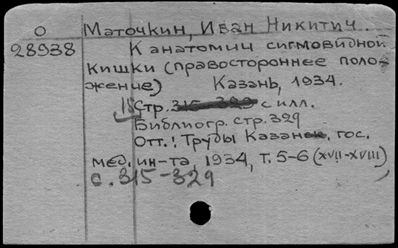 О Маточкин, Иван Никитич.
28938 К анатомии сигмовидной
кишки (правостороннее поло-
жение) Казань, 1934.
15 стр. 315-329 с илл.
Библиогр. стр. 329
Отт.: Труды Казанск. гос.
мед. ин-та, 1934, т. 5-6 (XVII-XVIII)
с. 315-329